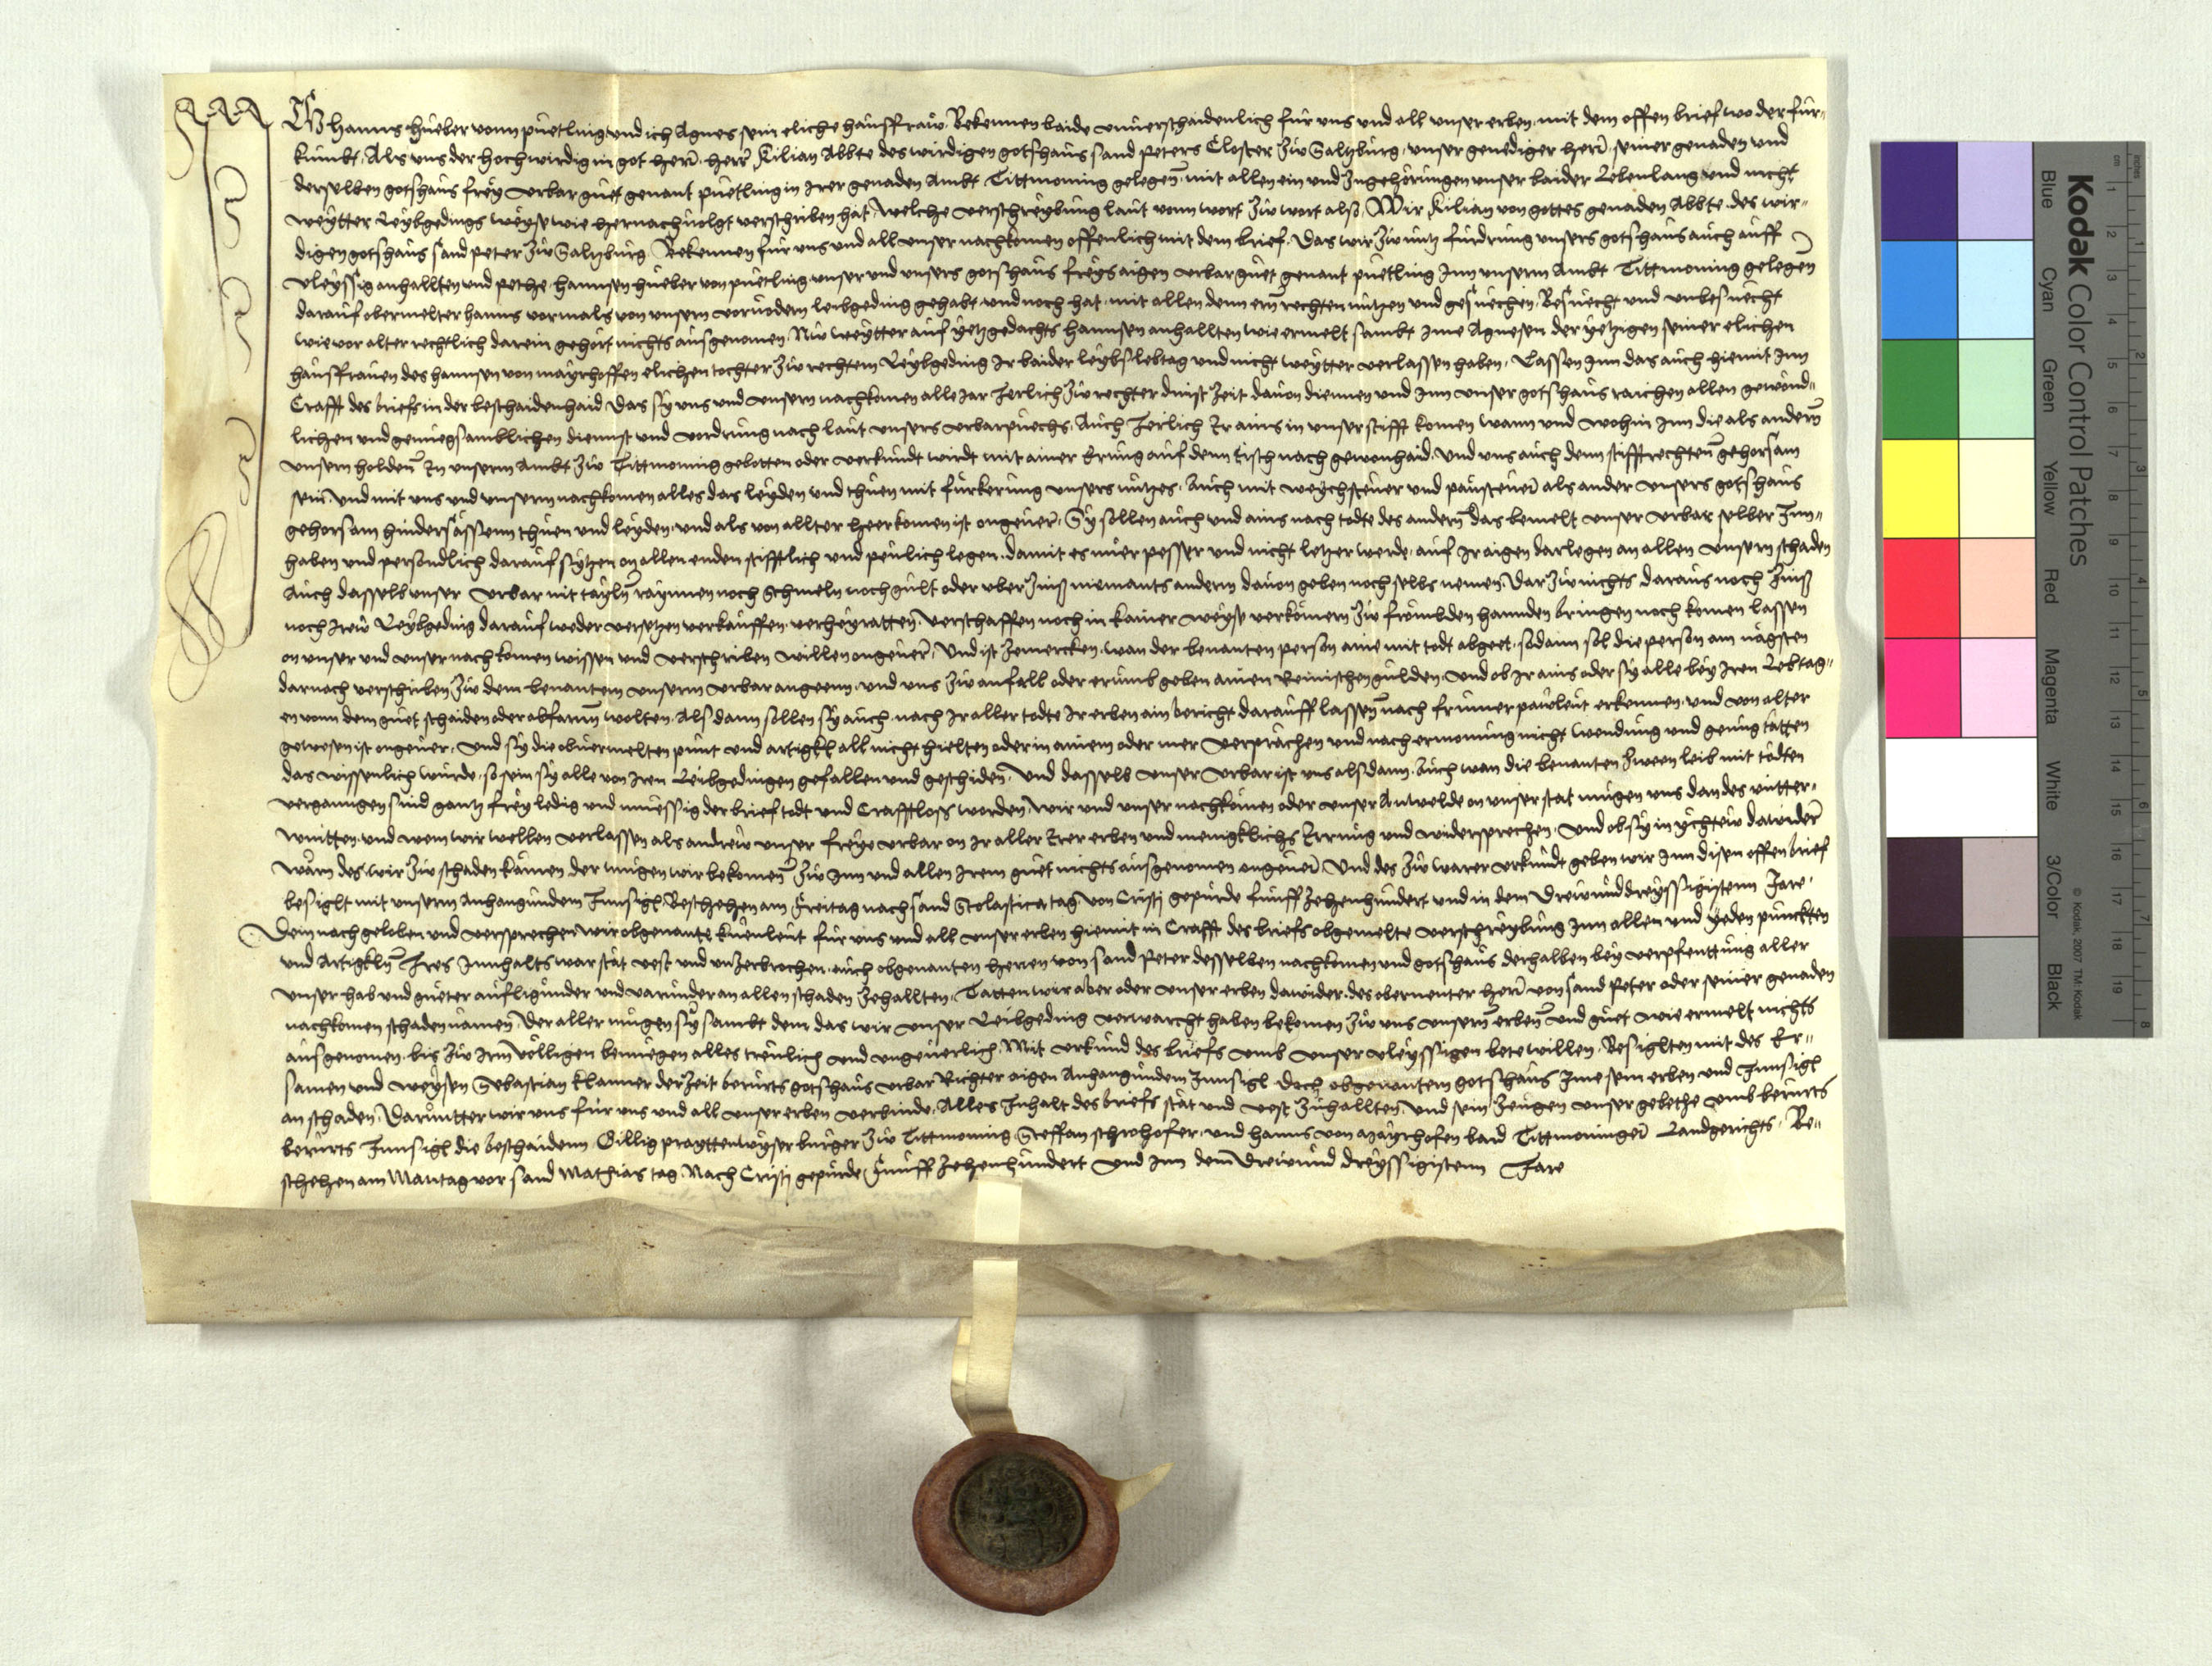 Ich hanns hueber vonn puetling und ich Agnes sein eliche hausfraw. Bekennen baide unnerschaidenlich für uns und all unser erben. mit dem offen brief wo der für-
kumbt. Als uns der hochwirdig in got herr. herr Kilian Abbte des wirdigen gotshaus sand peters Closter Zw Saltzburg. unser genediger herr. seiner genaden und
derselben gotshaus frey urbar guet genant puetling in irer genaden Ambt Tittmoning gelegen. mit allen ein und Zugehörungen unser baider Lebenlang und nicht
weytter Leybgedings weyse wie hernachuolgt verschriben hat. welche verschreybung laut vonn wort Zw wort also. Wir Kilian von gottes genaden Abbte. des wir-
digen gotshaus sand peter Zw Saltzburg Bekennen für uns und all unser nachkomen offenlich mit dem brief. Das wir Zw nutz fürdrung unsers gotshaus auch auff
vleyssig anhallten und pethe. hannsen hueber von puetling. unser und unsers gotshaus freys aigen urbar guet genant puetling Inn unserm Ambt Tittmoning gelegen
darauf obermelter hanns vormals von unsern voruodern leibgeding gehabt. und noch hat. mit allen denn ern rechten nützen und gesuechen. Besuecht und unbesuecht
wie vor alter rechtlich darein gehört nichts ausgenomen. Nw weytter auf yetzgedachts hannsen anhallten wie ermelt sambt ime Agnesen der yetzigen seiner elichen
hausfrauen des hannsen von mayrhoffen elichen tochter Zw rechtem Leybgeding Ir baider leybs lebtag und nicht weytter verlassen haben. Lassen Inn das auch hiemit Inn
Crafft des briefs in der beschaidenhaid Das sy uns und unsern nachkomen alle Jar Jerlich Zw rechter dinst Zeit dauon diennen und Inn unser gotshaus raichen allen gewönd-
lichen und genuegsamblichen diennst und vordrung nach laut unsers urbarpuechs. Auch Jerlich Ir ains in unser stifft komen wann und wohin Inn die als andern
unsern holden In unserm Ambt Zw Tittmoning gebotten oder verkündt wirdt mit ainer Erung auf denn tisch nach gewonhaid. und uns auch denn stifftrechten gehorsam
sein. und mit uns und unsern nachkomen alles das leyden und thuen mit fürkerung unsers nutzes. Auch mit weychsteuer und pausteuer als ander unsers gotshaus
gehorsam hindersässenn thuen und leyden. und als von allter heerkomen ist ongeuer. Sy sollen auch und ains nach todte des andern das bemelt unser urbar selber Inn-
haben und persondlich darauf sytzen on allen enden stifftlich und peulich legen. damit es mier pesser und nicht letzer werde. auf Ir aigen darlegen an allen unsern schaden
Auch dasselb unser urbar mit tayln raynnen noch schmeln noch gült oder uber Zinß niemants andern dauon geben noch selbs nemen. Dar Zw nichts daraus noch Zinß
noch Irew Leybgeding darauf weder versetzen verkauffen. verheyratten. verschaffen noch in kainer weyse verkomern Zw frömbden hannden bringen noch komen lassen
on unser und unser nachkomen wissen und verschriben willen ongeuer. Und ist Zemercken. wan der benanten person aine mit todt abgeet. sodann sol die person am nägsten
darnach verschriben Zw dem benantem unserm urbar angeenn. und uns Zw anfall oder erumb geben ainen Reinischen gulden. und ob Ir ains oder sy alle bey Iren Lebtag-
en vonn dem guet schaiden oder abfarnn wolten. Als dann sollen sy auch. nach Ir aller todte Ir erben ain bericht darauff lassen nach frumer pawleut erkennen. und von alter
gewesen ist ongeuer. und sy die obuermelten punt und artigkl all nicht hielten oder in ainem oder mer verprächen und nach ermonung nicht wendung und genug tätten
das wissenlich würde. so sein sy alle von Iren Leibgedingen gefallen und geschiden. und dasselb unser urbar ist uns alsdann. Auch wan die benanten Zween leib mit tödten
vergangen sind gantz frey ledig und muessig der brief todt und Crafftloss worden. wir und unser nachkomen oder unser Anwelde on unser stat mügen uns dan des unter-
wintten. und wem wir wellen verlassen als andrew unser freye urbar on Ir aller Irer erben und menigklichs Irrung und widersprechen. und ob sy in ychtew dawider
wärn des wir Zw schaden kämen der mügen wir bekomen Zw Inn und allen Irem guet nichts ausgenomen ongeuer. Und des Zw warer urkundt geben wir Inn disen offen brief
besiglt mit unserm Anhangundem Innsigl. Beschehen am Freitag nach sand Scolastica tag von Cristi gepurde fünffZehenhundert und in dem Drewunddreyssigistenn Jare.
Dem nach geloben und versprechen wir obgenante kuenleut für uns und all unser erben hiemit in Crafft des briefs obgemelte verschreybung Inn allen und yeden punckten
und Artigkln Ires Innhalts war stät vest und unZerbrochen. auch obgenanten herren von sand Peter desselben nachkomen und gotshaus derhalben bey verpfenttung aller
unser hab und güeter aufligunder und varunder an allen schaden Zehallten. Tätten wir aber oder unser erben dawider. des obernenter herr von sand Peter oder seiner genaden
nachkomen schaden nämen. Der aller mügen sy sambt dem das wir unser Leibgeding verwarcht haben bekomen Zw uns unsern erben und guet wie ermelt nichts
ausgenomen. bis Zw Irm völligen benuegen alles treulich und ungeuerlich. Mit urkund des briefs umb unser vleyssigen bete willen. Besiglten mit des Er-
samen und weysen Sebastian klanner der Zeit berürts gotshaus urbar Richter aigen Anhangundem Innsigl. Doch obgenantem gotshaus Ime sein erben und Innsigl
an schaden. Darunter wir uns für uns und all unser erben verbinde. Alles Inhalt des briefs stät und vest Zuhallten. und sein Zeugen unser gebethe umb berürts
berürts Innsigl die beschaidenn Gillig prayttenloyser burger Zw Tittmoning. Steffan schrohofer. und hanns von Mayrhofen baid Tittmoninger Landgerichts. Be-
schehen am Mantag vor sand Mathias tag. Nach Cristi gepurde Fünff Zehenhundert und Inn dem Drewund dreyssigistenn Jare
Kodak Color Control Patches
Blue Cyan Green Yellow Red Magenta White 3/Color Black
© Kodak, 2007 TM: Kodak
cm 1 2 3 4 5 6 7 8 9 10 11 12 13 14 15 16 17 18 19
inches 1 2 3 4 5 6 7 8